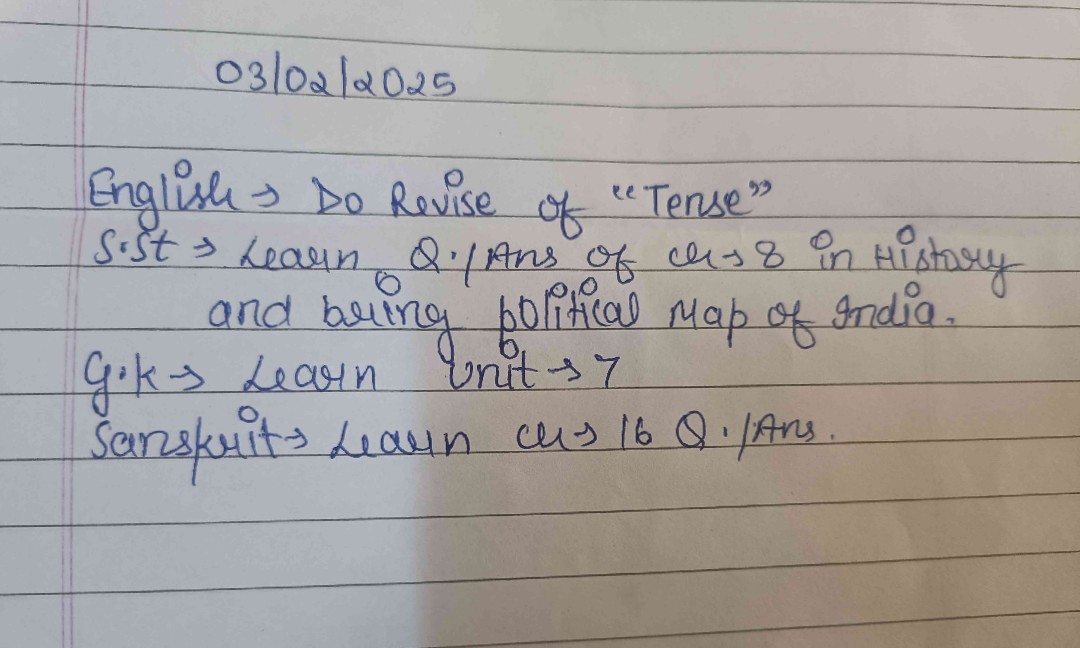 03/02/2025
English → Do Revise of "Tense"
S.St → Learn Q./Ans of ch → 8 in History
and bring political Map of India.
G.K → Learn Unit → 7
Sanskrit → Learn ch → 16 Q./Ans.